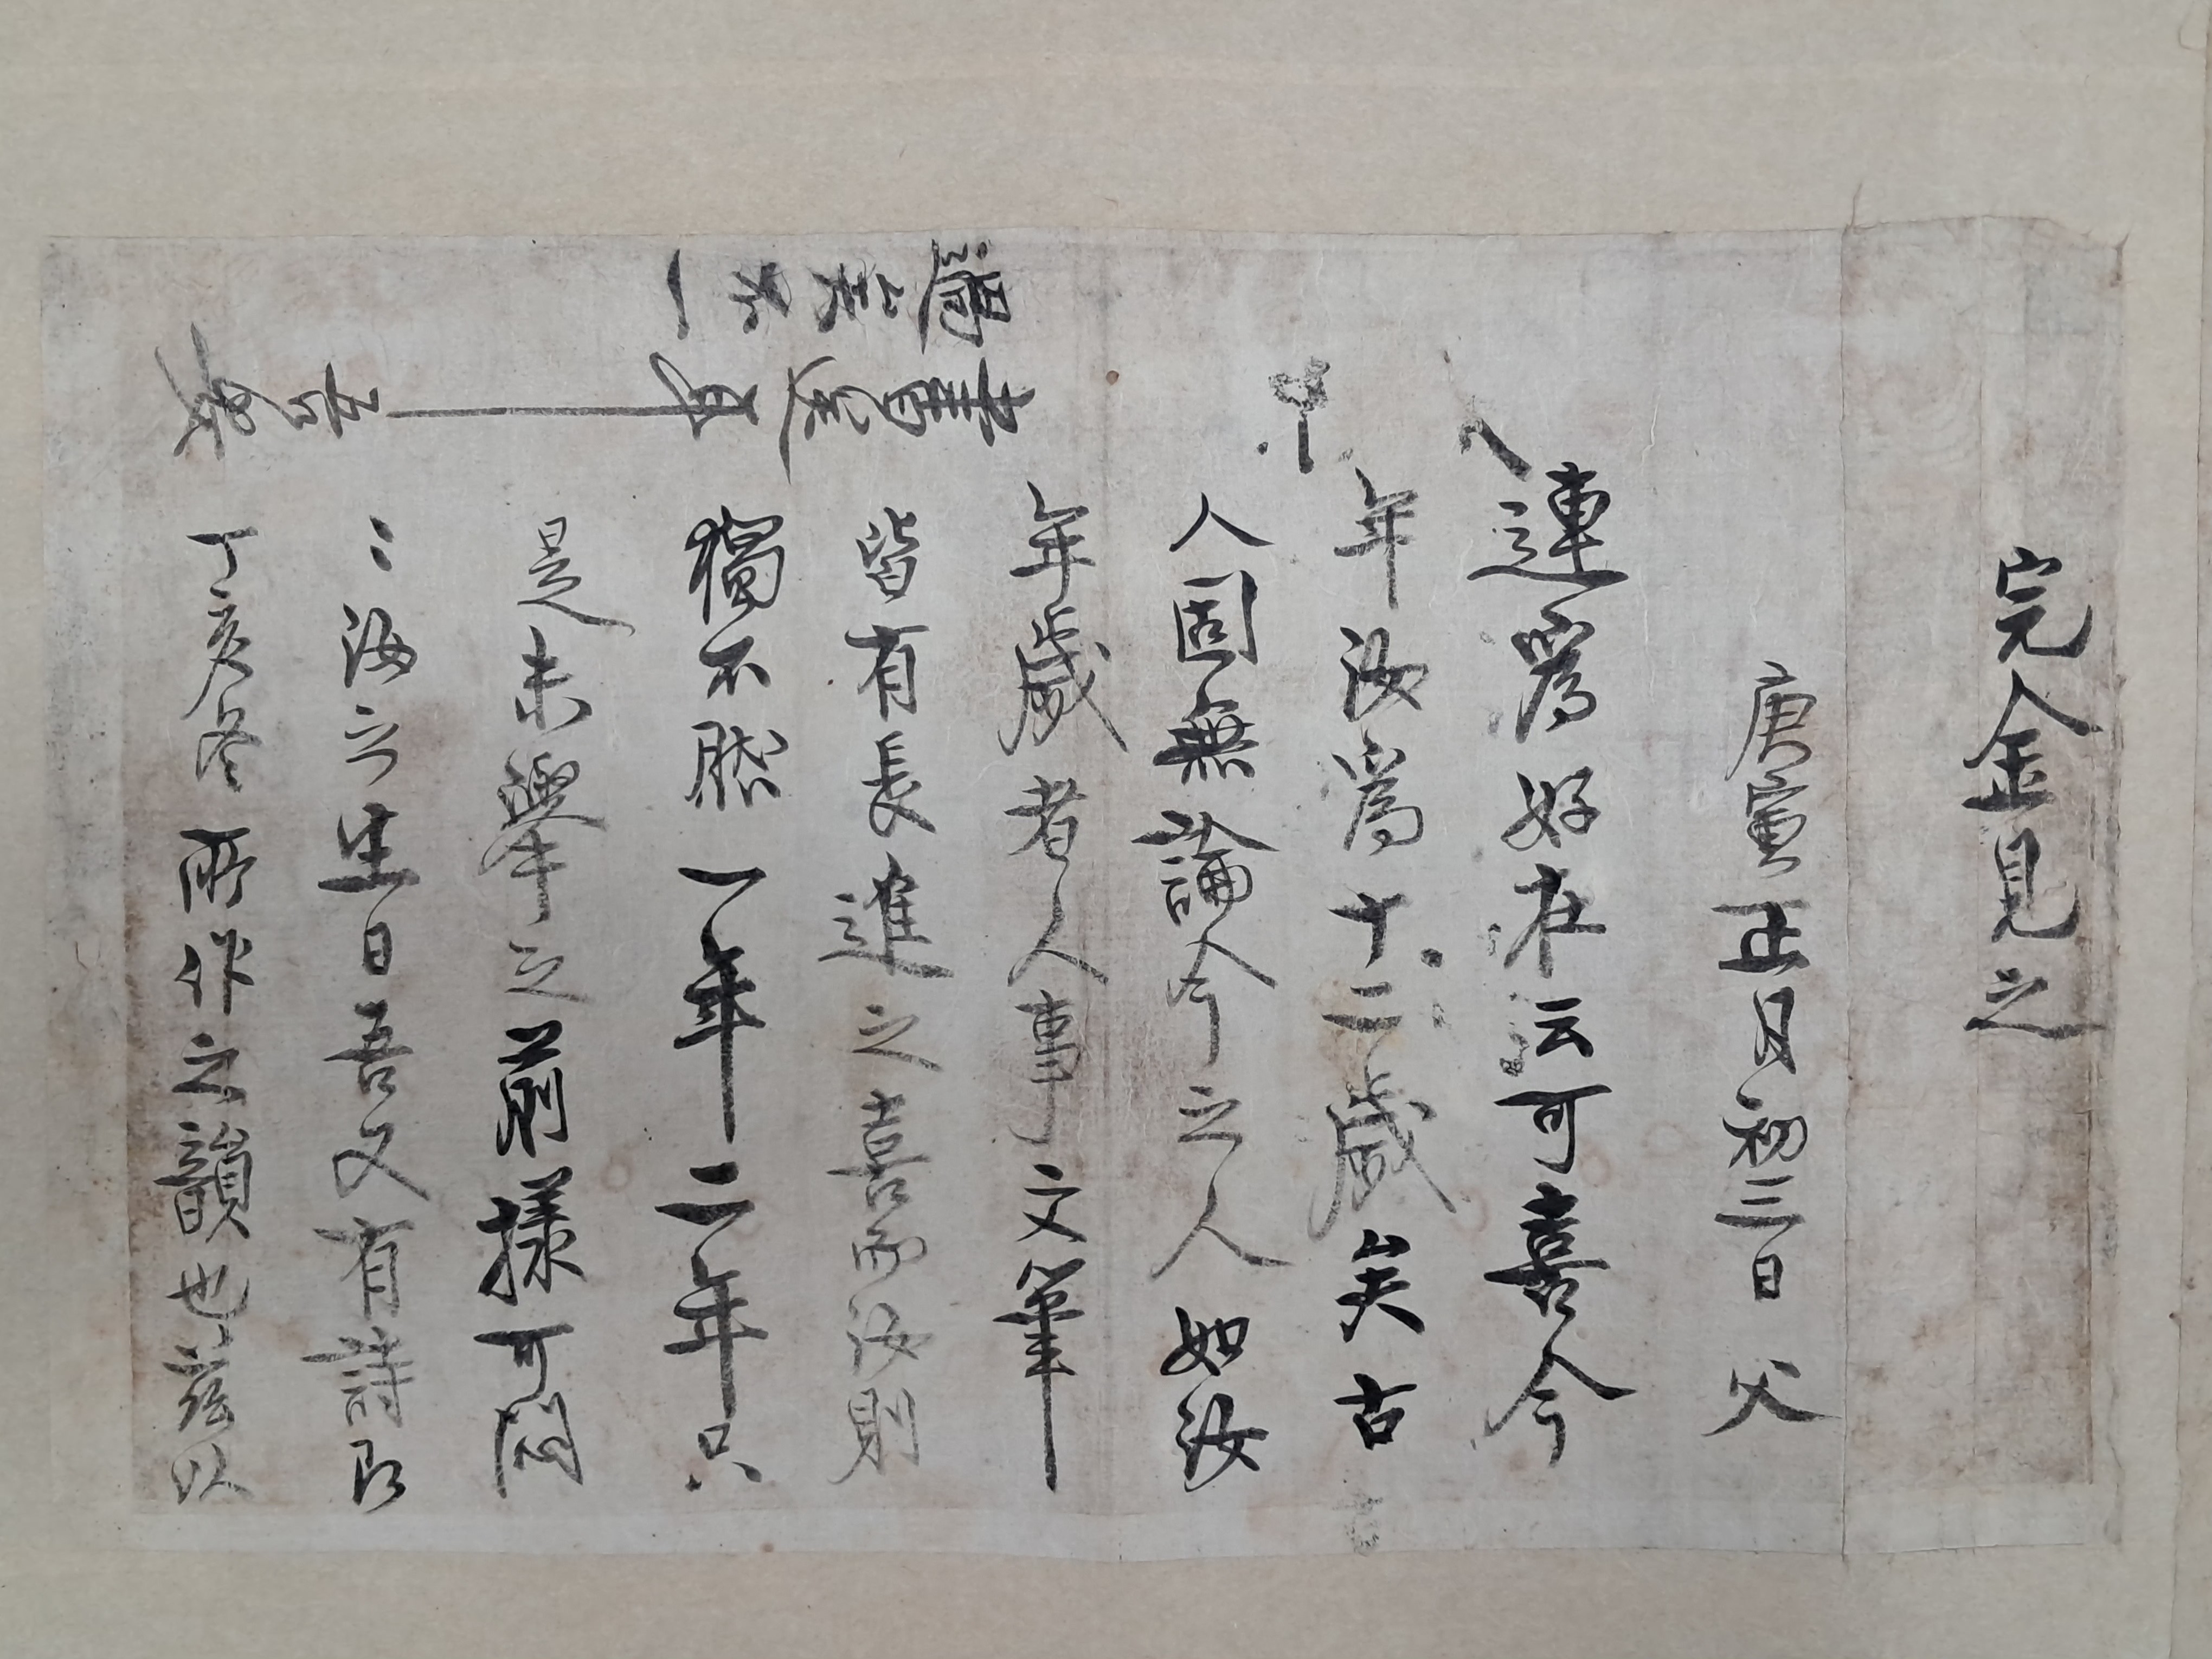 完金見之
庚寅正月初三日 父
連爲好在云可喜今
年汝爲十二歲矣古
人固無論今之人如汝
年歲者人事文筆
皆有長進之喜而汝則
獨不然一年二年只
是未學之前樣可悶
〻汝之生日吾又有詩即
丁亥冬所作之韻也茲以
書
不一